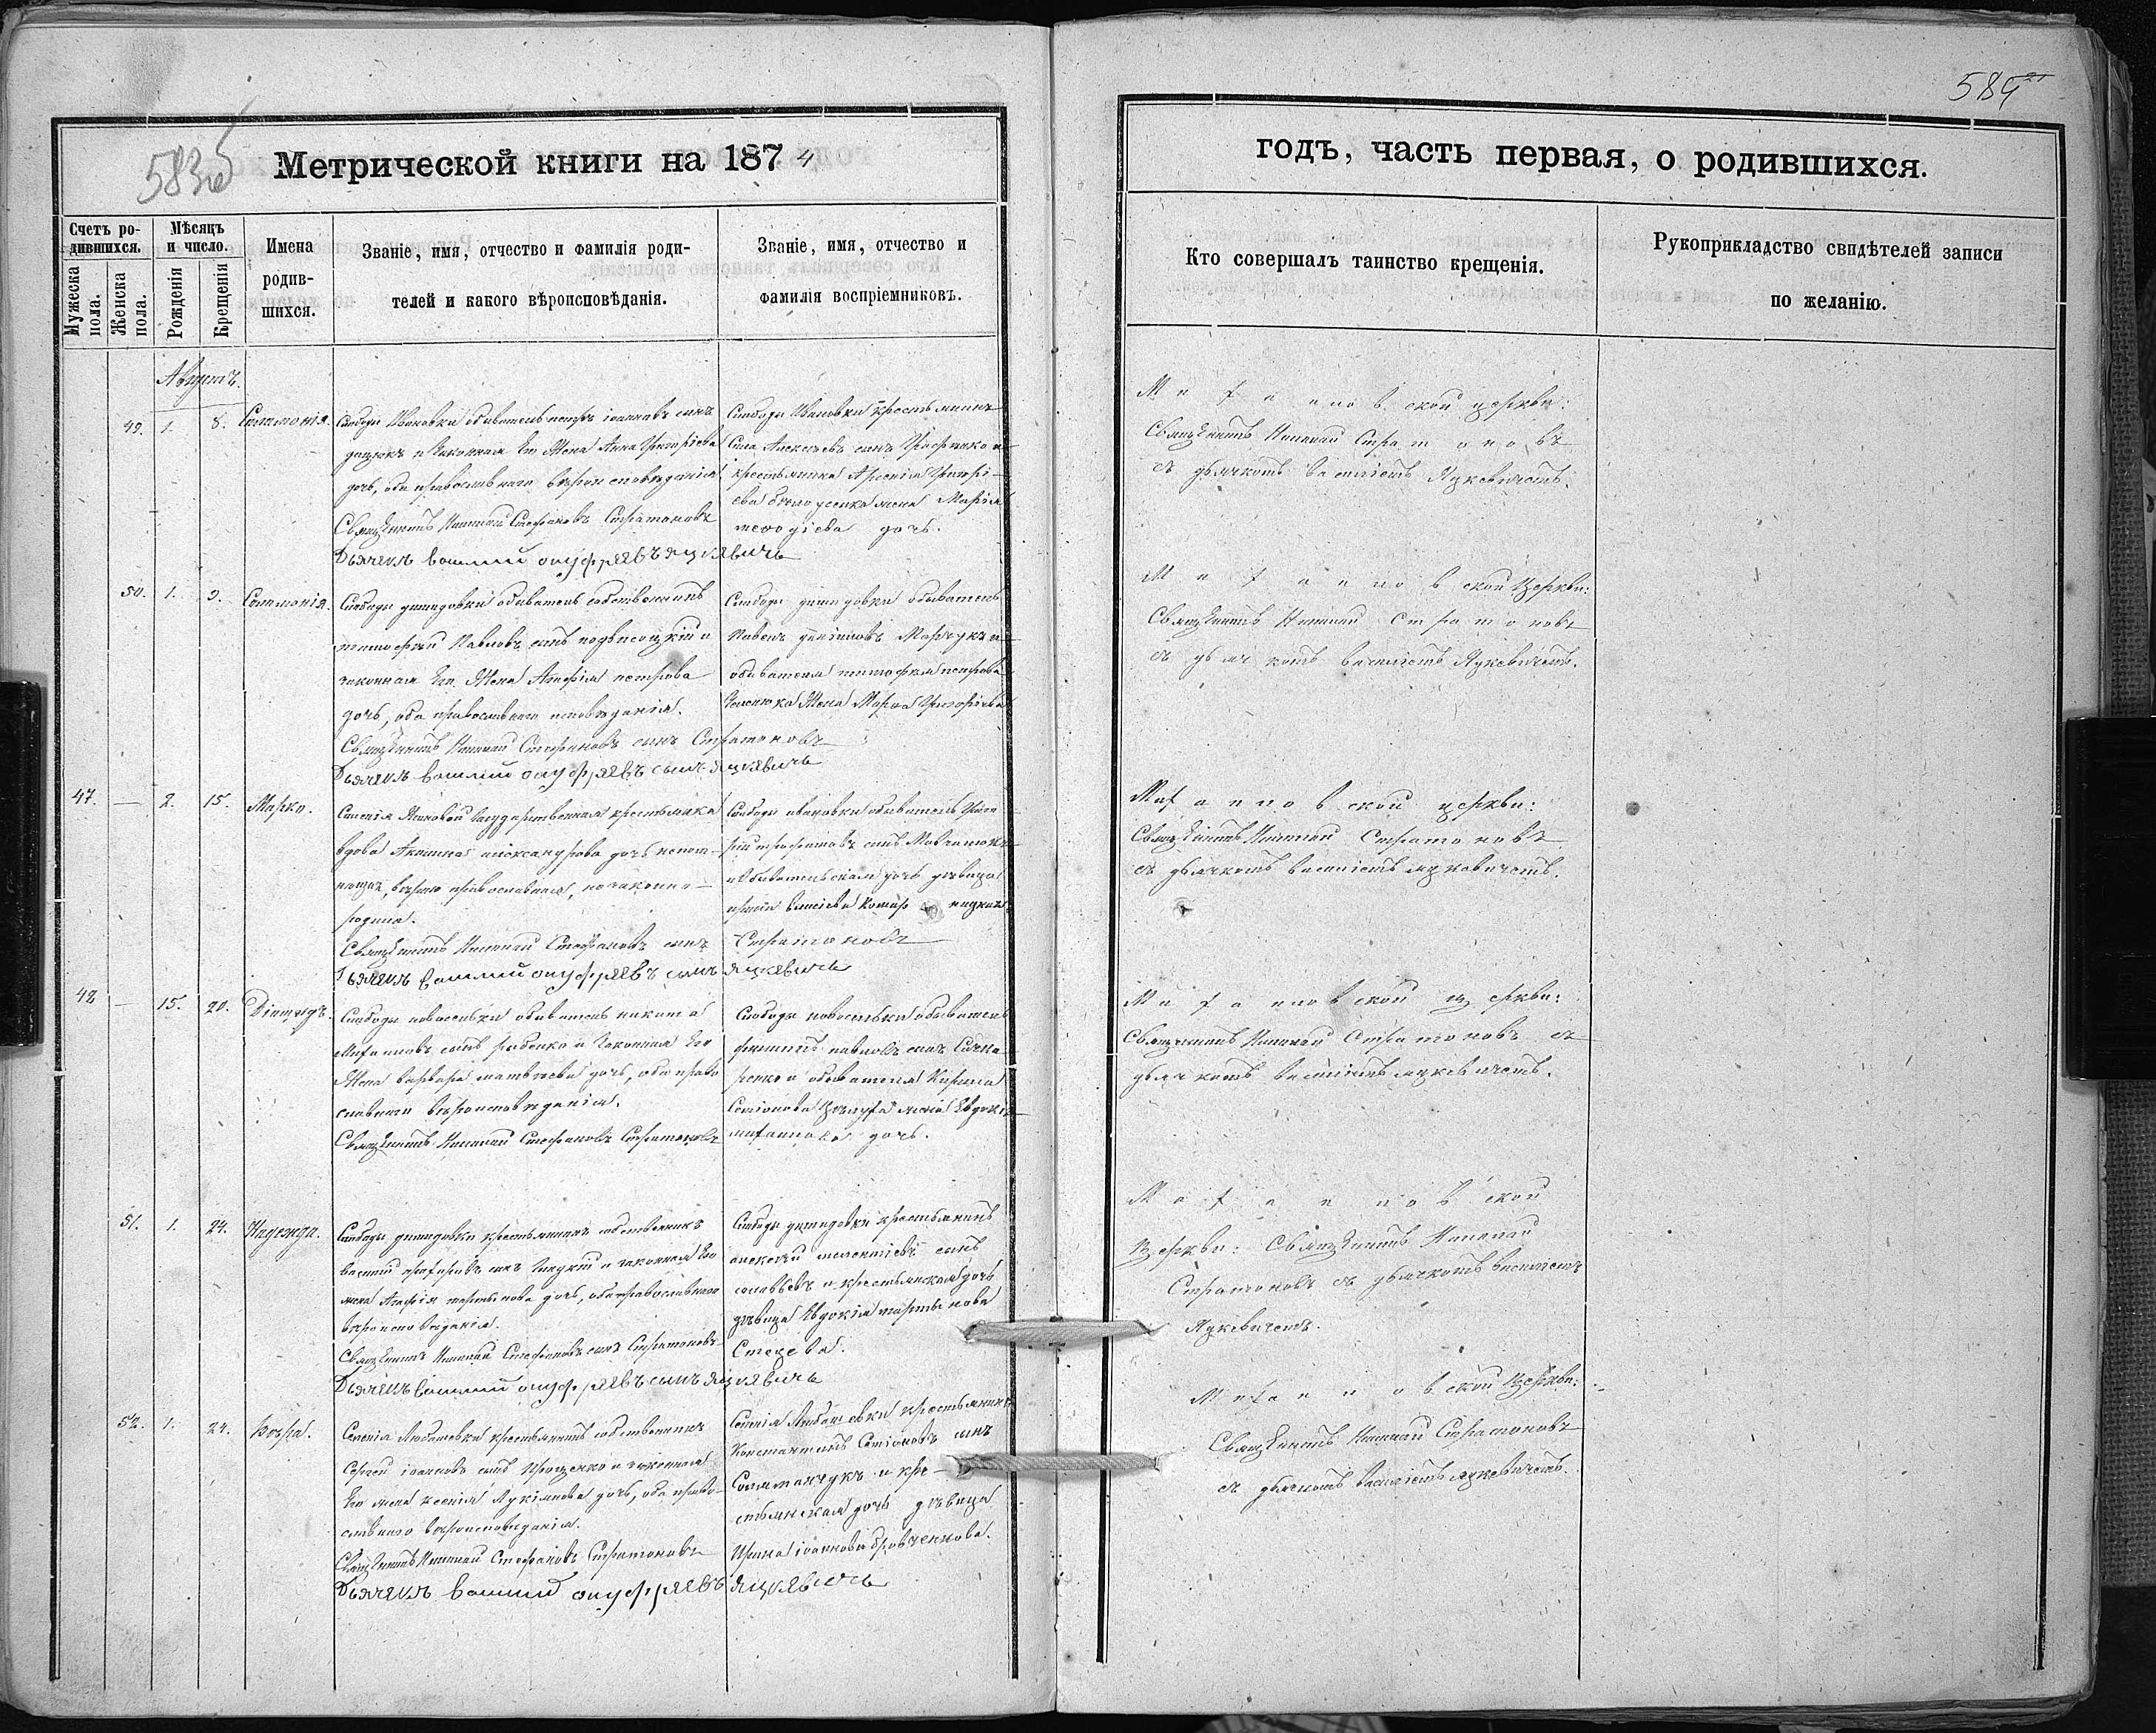 583 об
Метрической книги на 1874
Счетъ ро-
дившихся.
Мужеска
пола.
Женска
пола.
Мѣсяцъ
и число.
Рожденія
Крещенія
Имена
родив-
шихся.
Званіе, имя, отчество и фамилія роди-
телей и какого вѣроисповѣданія.
Званіе, имя, отчество и
фамилія воспріемниковъ.
Августъ.
49. 1. 8. Соломонія.
Слободы Ивановки обыватель петръ іоанновъ сынъ
и законная Его Жена Анна Григоріева
дочь, оба православнаго вѣроисповѣданія
Священникъ Николай Стефановъ Стратоновъ
Дьячекъ Василий онуфріевъ яцкевичь
Слободы Ивановки крестьянинъ
Сила Алексѣевъ сынъ
крестьянина Арсенія Григорі-
ева жена Марѳа
меѳодіева дочь.
50. 1. 9. Соломонія.
Слободы демидовки обыватель собственникъ
тимофей Павловъ сынъ подвысоцкій и
законная Его Жена Агафія петрова
дочь, оба православнаго исповѣданія.
Священникъ Николай Стефановъ сынъ Стратоновъ
Дьячекъ Василий онуфріевъ сынъ яцкевичь
Слободы демидовки обыватель
Павелъ даніиловъ Марчукъ и
обывателя тимофея петрова
Жена Марѳа Григоріева
47. — 2. 15. Марко.
Селенія Государственная крестьянка
вдова Акилина александрова дочь
вѣрою православная, незаконно-
родила.
Священникъ Николай Стефановъ сынъ Стратоновъ
Дьячекъ Василий онуфріевъ сынъ яцкевичь
Слободы ивановки обыватель Григо-
рій трофимовъ сынъ
и обывательская дочь дѣвица
48 — 15. 20. Діомидъ.
Слободы новоселки обыватель никита
Михаиловъ сынъ рябенко и Законная Его
Жена варвара матвѣева дочь, оба право-
славнаго вѣроисповѣданія.
Священникъ Николай Стефановъ Стратоновъ
Слободы новоселки обыватель
филиппъ павловъ сынъ
и обывателя Кирила
Семіонова жена Евдокія
михаилова дочь.
51. 1. 24. Надежда.
Слободы демидовки крестьянинъ собственникъ
василій сынъ Гладкій и законная Его
жена Агафія мартынова дочь, оба православнаго
вѣроисповѣданія.
Священникъ Николай Стефановъ сынъ Стратоновъ
Дьячекъ Василий онуфріевъ сынъ яцкевичь
Слободы демидовки крестьянинъ
алексѣй сынъ
соловьевъ и крестьянская дочь
дѣвица Евдокія мартынова
52. 1. 24. Вѣра.
Селенія Любашевки крестьянинъ собственникъ
Сергей іоанновъ сынъ Проценко и законная
Его жена ксенія Лукіянова дочь, оба право-
славнаго вѣроисповѣданія.
Священникъ Николай Стефановъ Стратоновъ
Дьячекъ Василий онуфріевъ яцкевичь
Селенія Любашевки крестьянинъ
Константинъ Семіоновъ сынъ
и кре-
стьянская дочь дѣвица
Ирина іоаннова бровченкова.
584
годъ, часть первая, о родившихся.
Кто совершалъ таинство крещенія.
Рукоприкладство свидѣтелей записи
по желанію.
Михаиловской церкви:
Священникъ Николай Стратоновъ
съ дьячкомъ василіемъ Яцкевичемъ.
Михаиловской Церкви:
Священникъ Николай Стратоновъ
съ дьячкомъ василіемъ Яцкевичемъ.
Михаиловской церкви:
Священникъ Николай Стратоновъ
съ дьячкомъ василіемъ яцкевичемъ.
Михаиловской церкви:
Священникъ Николай Стратоновъ съ
дьячкомъ василіемъ яцкевичемъ.
Михаиловской
Церкви: Священникъ Николай
Стратоновъ съ дьячкомъ василіемъ
Яцкевичемъ.
Михаиловской Церкви:
Священникъ Николай Стратоновъ
съ дьячкомъ василіемъ яцкевичемъ.